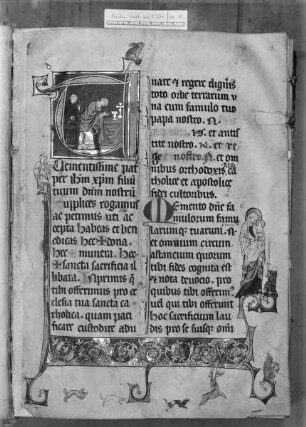 Clementissime pat
per ihm xpm filiu
tuum dnm nostru
supplices rogamus
ac petimus uti ac
cepta habeas et ben
edicas hec + dona.
hec + munera. hec +
sancta sacrificia il
libata. Inprimis q
tibi offerimus pro ec
clesia tua sancta ca
tholica. quam paci
ficare custodire adu
nare et regere digneris
toto orbe terrarum v
na cum famulo tuo
papa nostro. N.
et antis
tite nostro. N. et re
ge nostro. N. et om
nibus orthodoxis ca
tholice et apostolice
fidei cultoribus.
Memento dne fa
mulorum famu
larumq tuarum. N.
et omnium circum
astancium quorum
tibi fides cognita est
et nota deuocio. pro
quibus tibi offerim
uel qui tibi offerunt
hoc sacrificium lau
dis pro se suisq omi